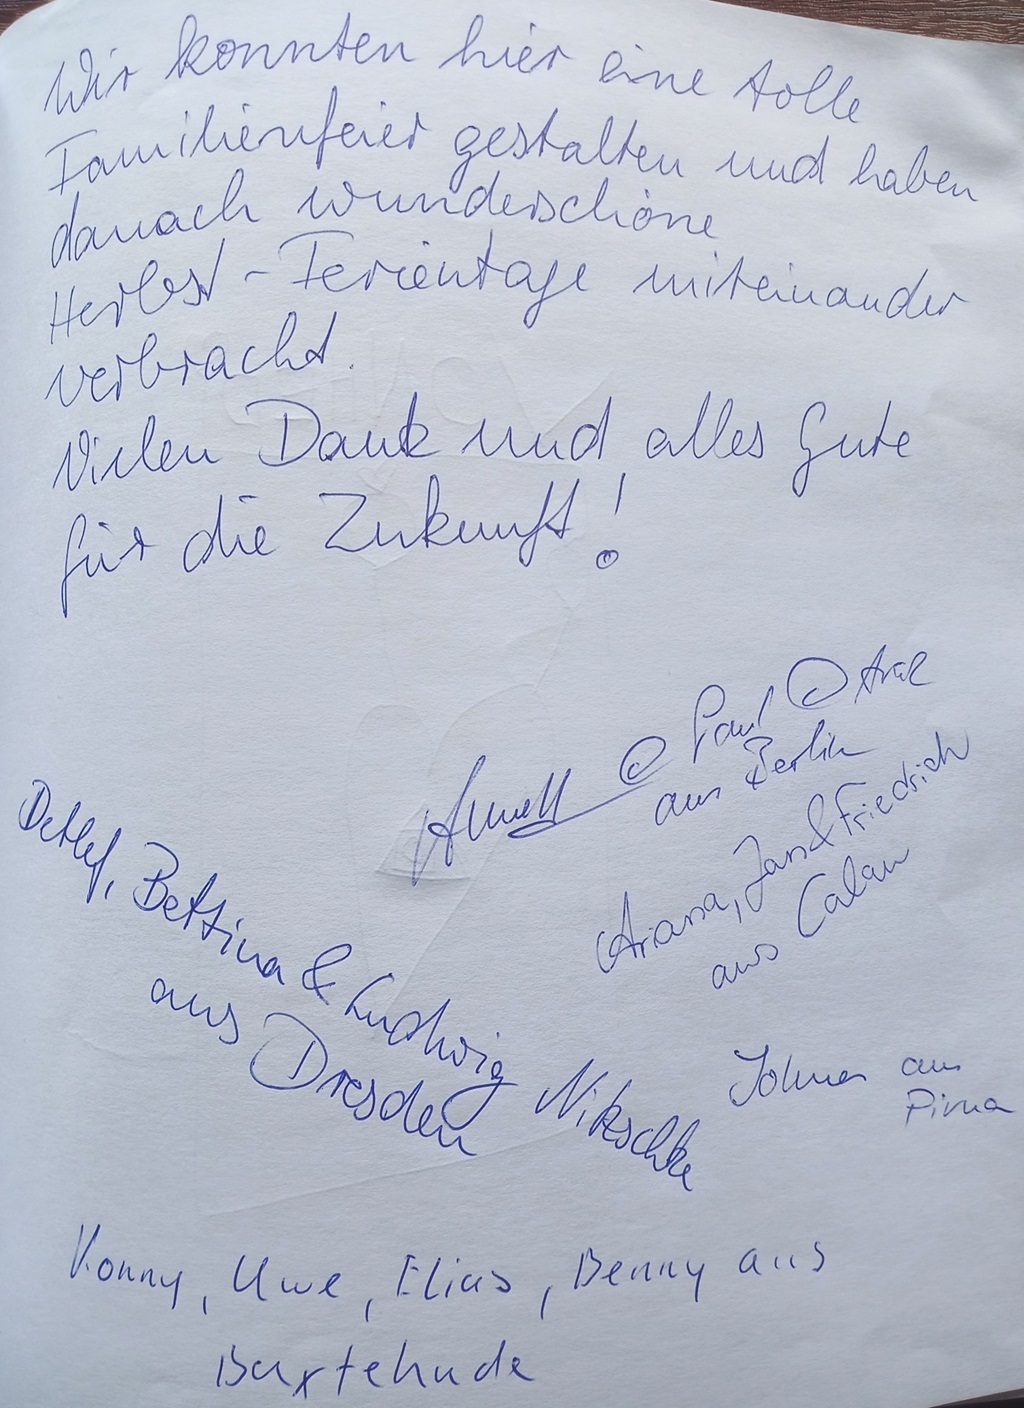 Wir konnten hier eine tolle
Familienfeier gestalten und haben
danach wunderschöne
Herbst-Ferientage miteinander
verbracht.
Vielen Dank und alles Gute
für die Zukunft!
@ Paul
aus Berlin
Detlef, Bettina & Ludwig Nitzschke
aus Dresden
Ariana, Jans & Friedrich
aus Calau
aus
Pirna
Konny, Uwe, Elias, Benny aus
Buxtehude